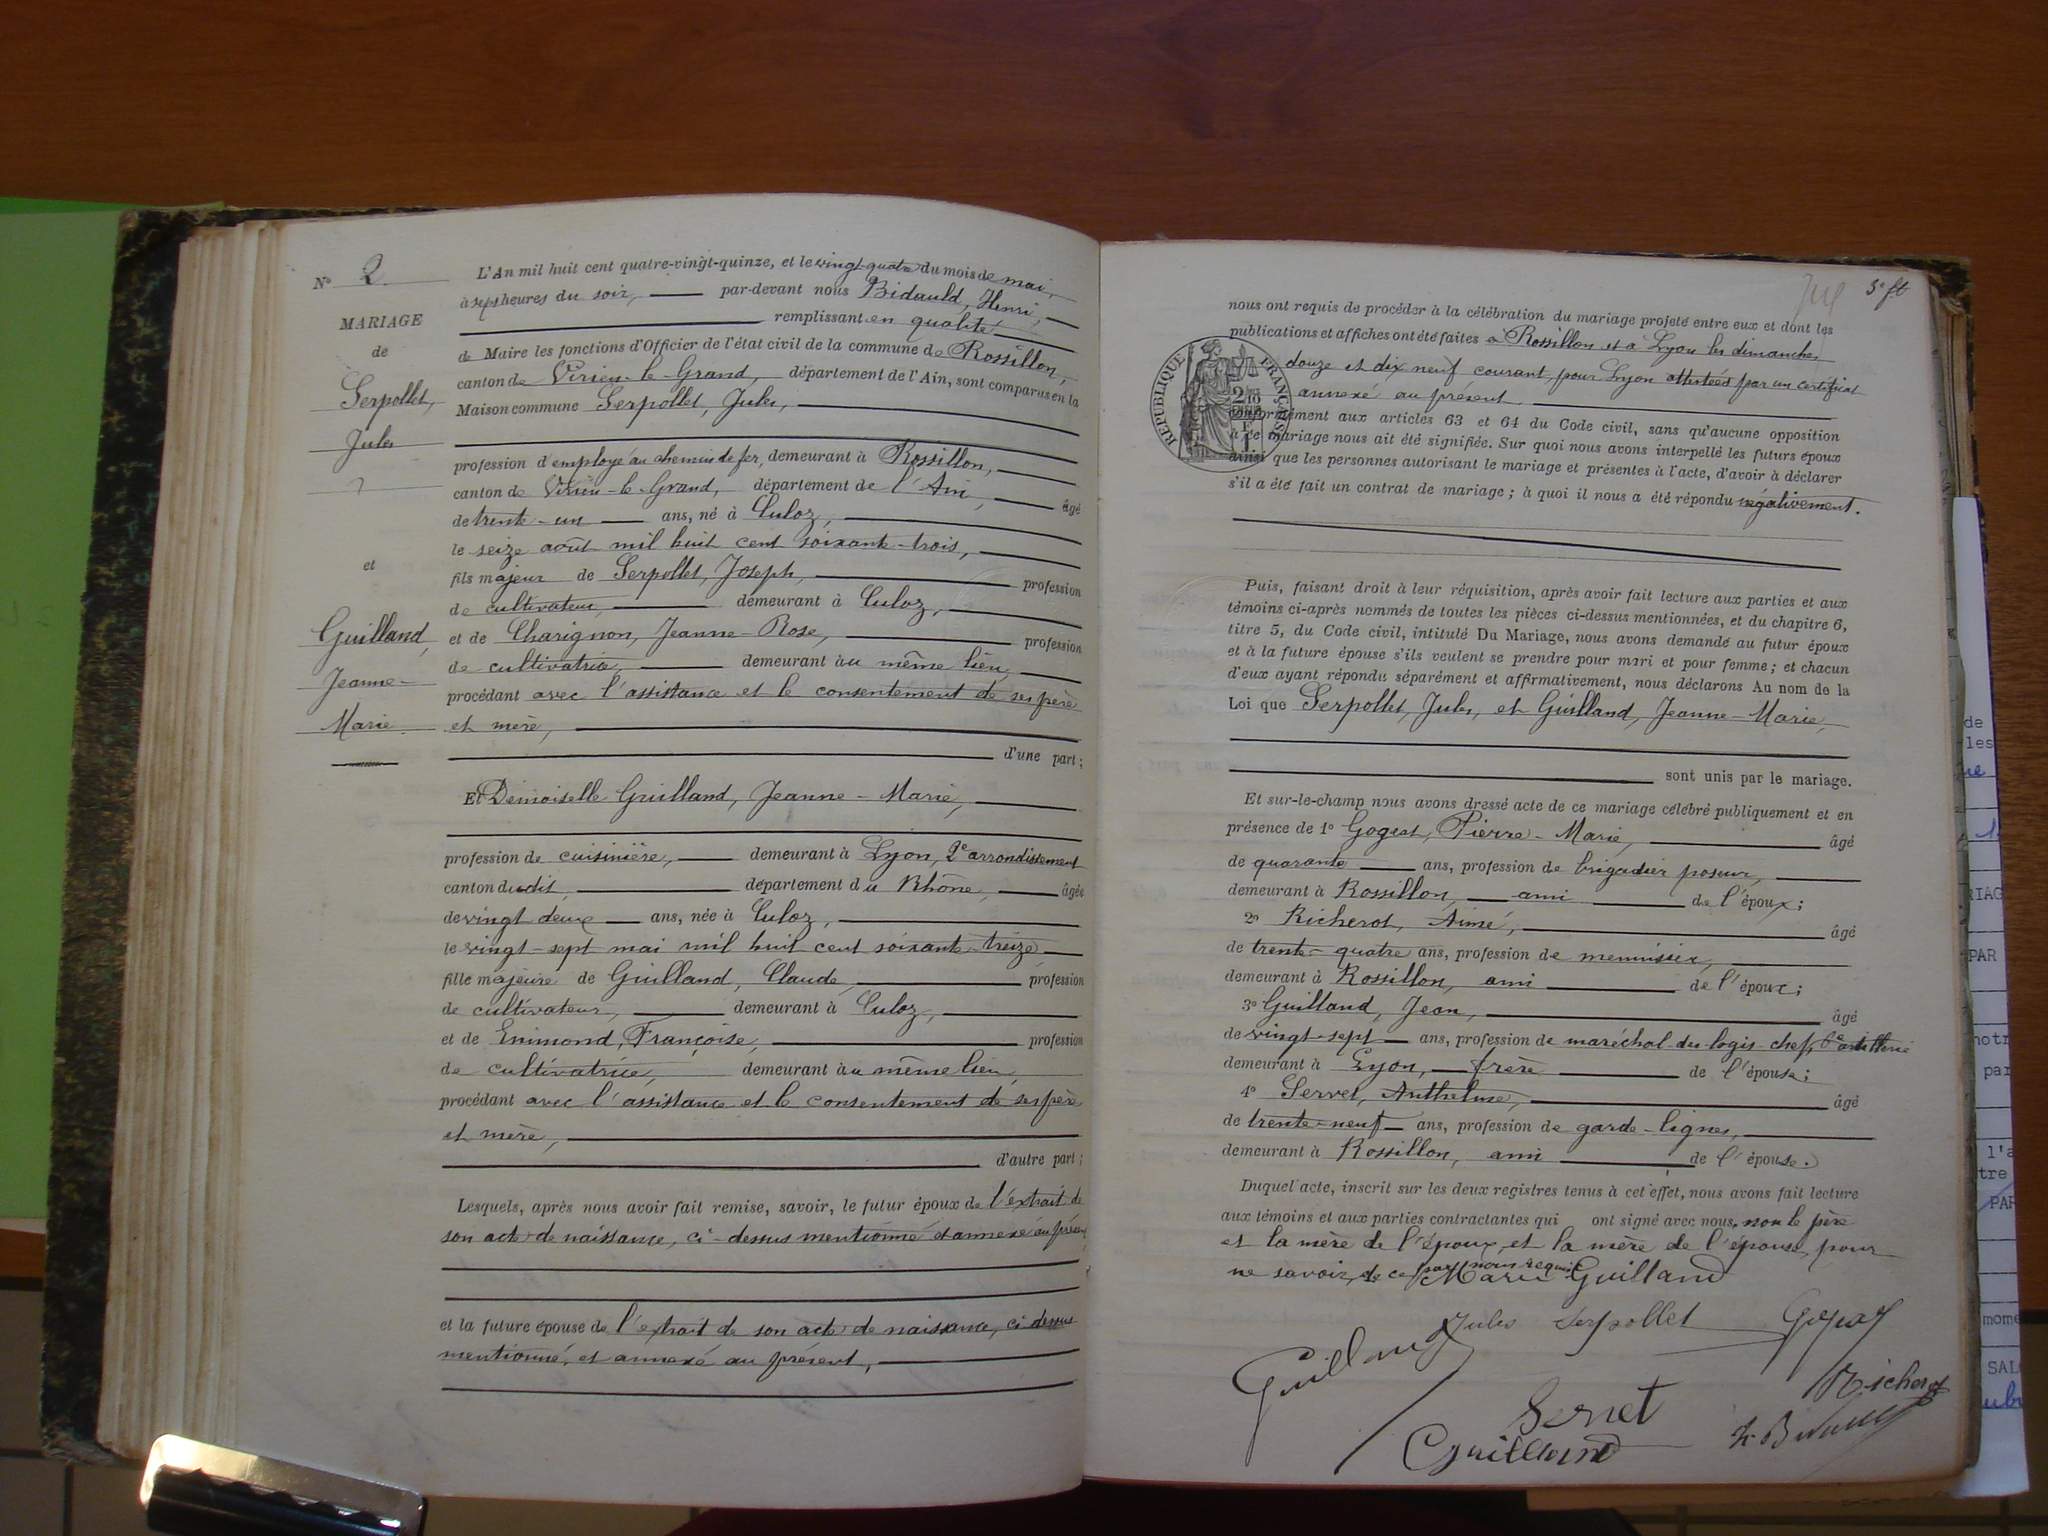 N° 2
MARIAGE
de
Serpollet,
Jules
et
Guilland,
Jeanne-
Marie
L'An mil huit cent quatre-vingt-quinze, et le vingt-quatre du mois de mai,
à sept heures du soir, par-devant nous Bidauld, Henri,
remplissant en qualité
de Maire les fonctions d'Officier de l'état civil de la commune de Rossillon,
canton de Virieu-le-Grand, département de l'Ain, sont comparus en la
Maison commune Serpollet, Jules,
profession d'employé au chemin de fer, demeurant à Rossillon,
canton de Virieu-le-Grand, département de l'Ain, âgé
de trente-un ans, né à Culoz,
le seize août mil huit cent soixante-trois,
fils majeur de Serpollet, Joseph, profession
de cultivateur, demeurant à Culoz,
et de Charignon, Jeanne-Rose, profession
de cultivatrice, demeurant au même lieu,
procédant avec l'assistance et le consentement de ses père
et mère,
d'une part;
Et Demoiselle Guilland, Jeanne-Marie,
profession de cuisinière, demeurant à Lyon, 2e arrondissement
canton dudit, département du Rhône, âgée
de vingt deux ans, née à Culoz,
le vingt-sept mai mil huit cent soixante-treize
fille majeure de Guilland, Claude, profession
de cultivateur, demeurant à Culoz,
et de Enimond, Françoise, profession
de cultivatrice, demeurant au même lieu,
procédant avec l'assistance et le consentement de ses père
et mère,
d'autre part;
Lesquels, après nous avoir fait remise, savoir, le futur époux de l'extrait de
son acte de naissance, ci-dessus mentionné et annexé au présent,
et la future épouse de l'extrait de son acte de naissance, ci dessus
mentionné, et annexé au présent,
nous ont requis de procéder à la célébration du mariage projeté entre eux et dont les
publications et affiches ont été faites à Rossillon et à Lyon les dimanches
douze et dix neuf courant, pour Lyon attestées par un certificat
annexé au présent
RÉPUBLIQUE FRANÇAISE
conformément aux articles 63 et 64 du Code civil, sans qu'aucune opposition
à ce mariage nous ait été signifiée. Sur quoi nous avons interpellé les futurs époux
ainsi que les personnes autorisant le mariage et présentes à l'acte, d'avoir à déclarer
s'il a été fait un contrat de mariage; à quoi il nous a été répondu négativement.
Puis, faisant droit à leur réquisition, après avoir fait lecture aux parties et aux
témoins ci-après nommés de toutes les pièces ci-dessus mentionnées, et du chapitre 6,
titre 5, du Code civil, intitulé Du Mariage, nous avons demandé au futur époux
et à la future épouse s'ils veulent se prendre pour mari et pour femme; et chacun
d'eux ayant répondu séparément et affirmativement, nous déclarons Au nom de la
Loi que Serpollet, Jules, et Guilland, Jeanne-Marie,
sont unis par le mariage.
Et sur-le-champ nous avons dressé acte de ce mariage célébré publiquement et en
présence de 1° Goget, Pierre-Marie, âgé
de quarante ans, profession de brigadier poseur,
demeurant à Rossillon, ami de l'époux;
2° Richerot, Aimé, âgé
de trente-quatre ans, profession de menuisier,
demeurant à Rossillon, ami de l'époux;
3° Guilland, Jean, âgé
de vingt-sept ans, profession de maréchal-des-logis-chef, 6e artillerie
demeurant à Lyon, frère de l'épouse;
4° Servet, Anthelme, âgé
de trente-neuf ans, profession de garde-lignes,
demeurant à Rossillon, ami de l'épouse.
Duquel acte, inscrit sur les deux registres tenus à cet effet, nous avons fait lecture
aux témoins et aux parties contractantes qui ont signé avec nous, non le père
et la mère de l'époux, et la mère de l'épouse, pour
ne savoir, de ce par nous requis
Marie Guilland
Jules Serpollet
Guilland
Richerot
Servet
Guilland